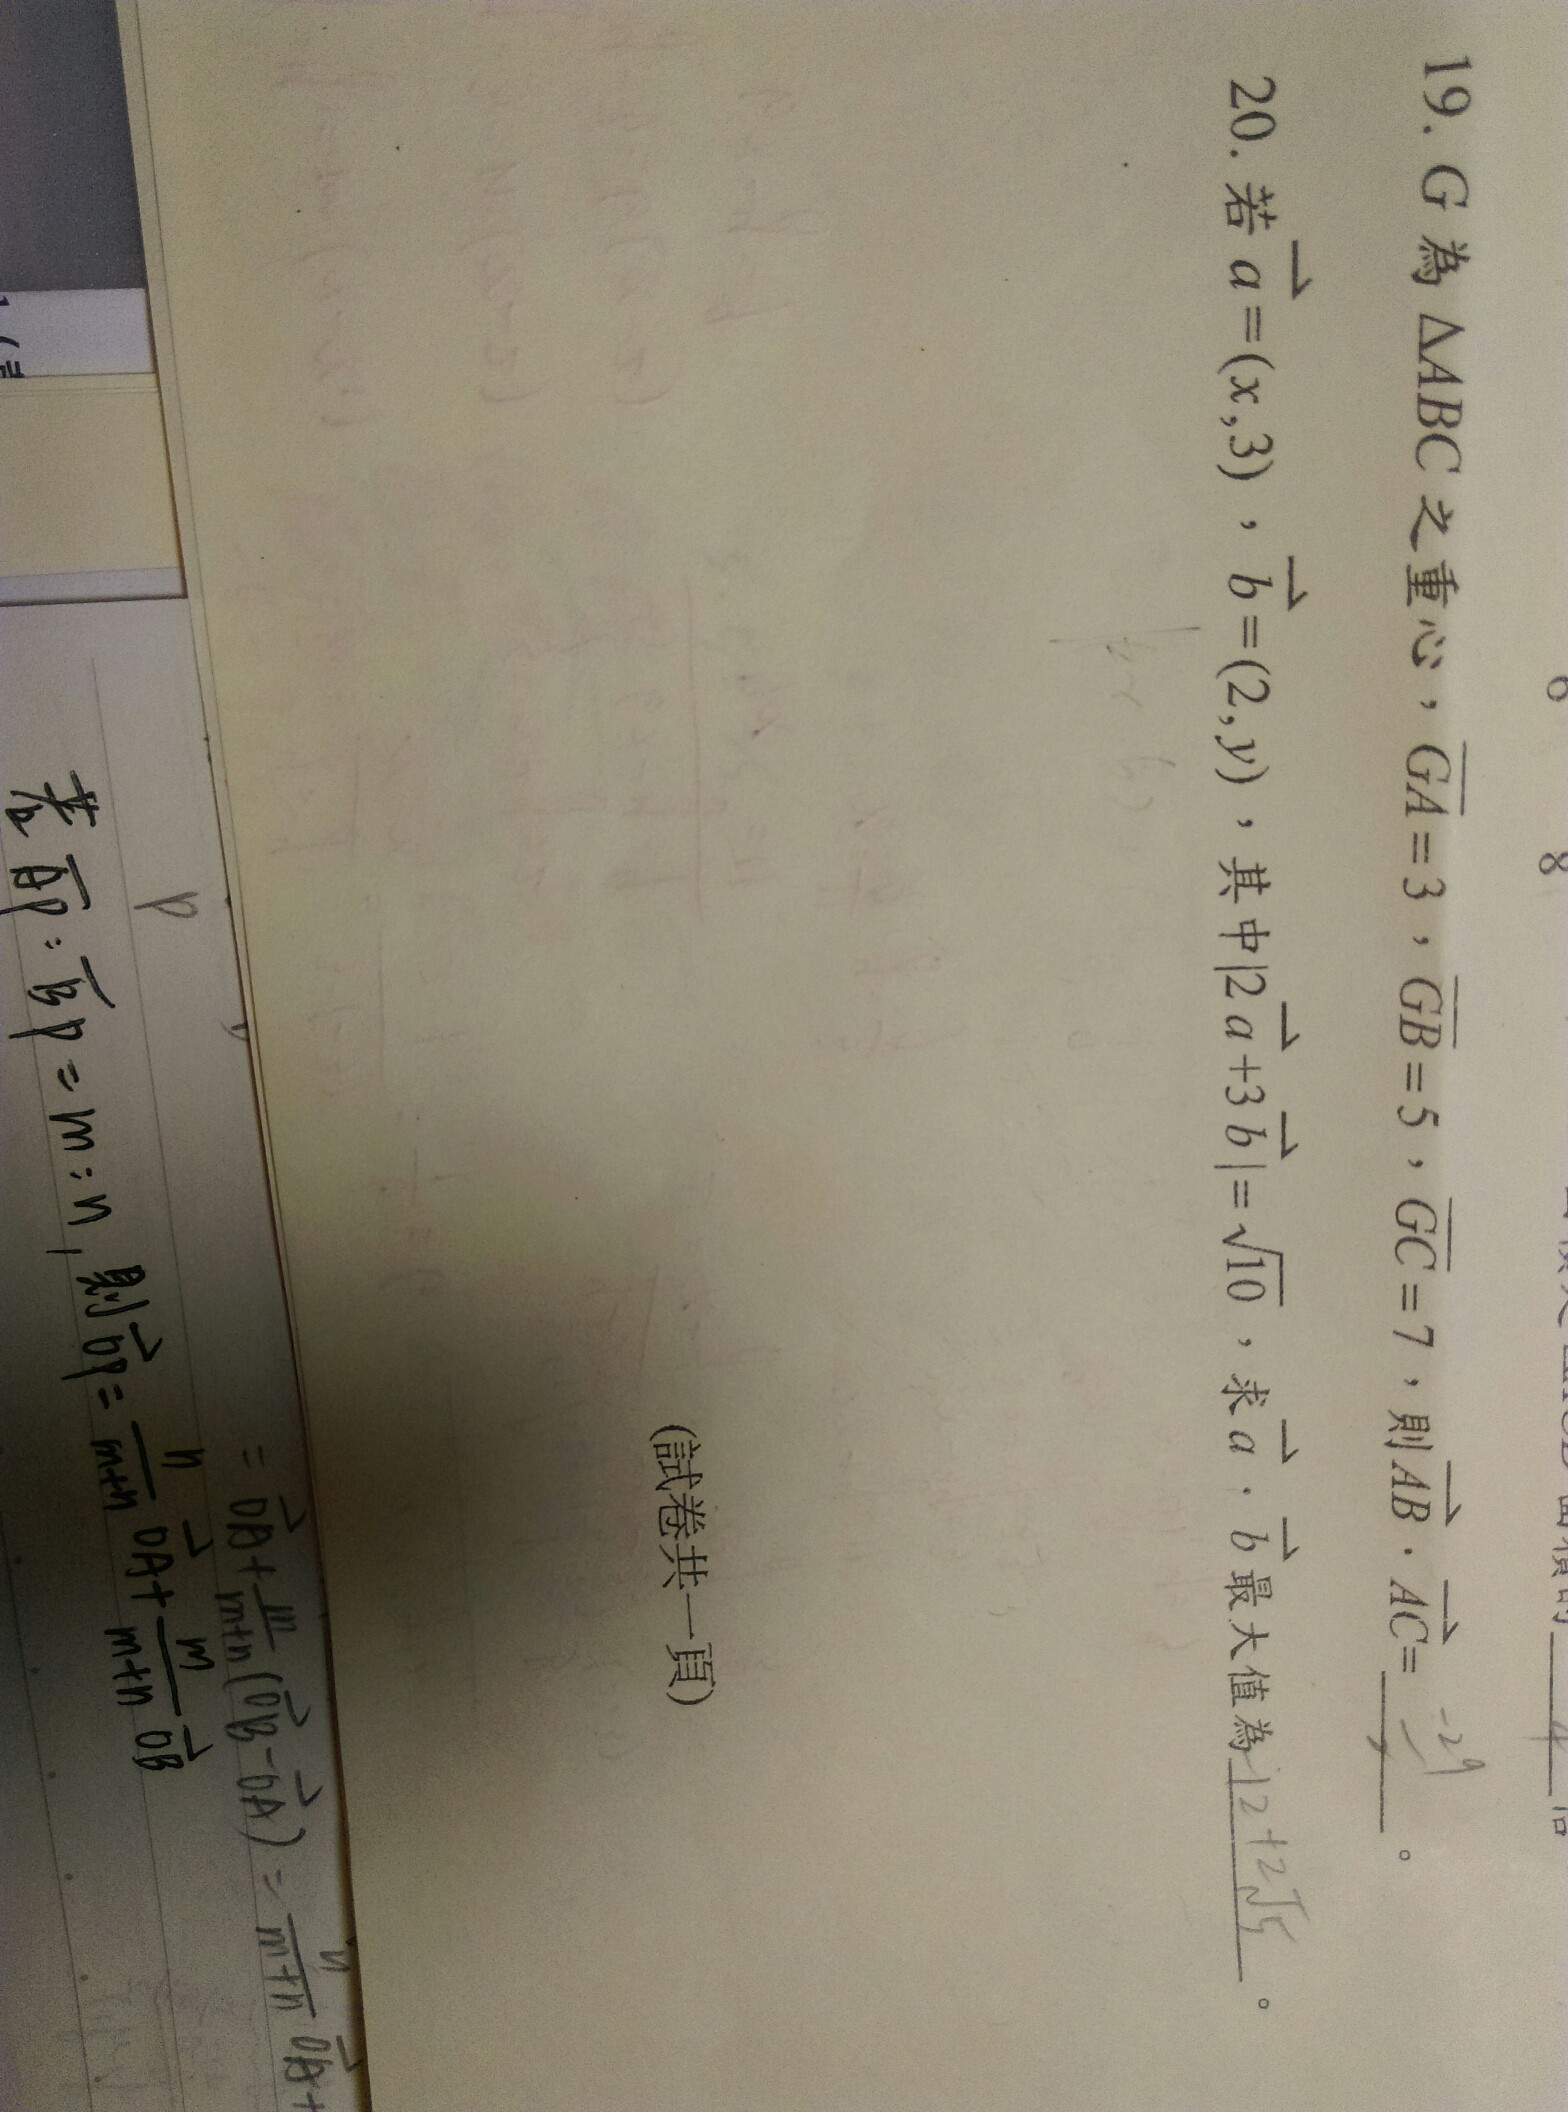 6 8
19. G 為 △ABC 之重心，GA=3，GB=5，GC=7，則 AB⃗ · AC⃗ = -29 。
20. 若 a⃗=(x,3)，b⃗=(2,y)，其中|2a⃗+3b⃗|=√10，求 a⃗ · b⃗ 最大值為 -12+2√5 。
(試卷共一頁)
= OA⃗ + m/(m+n) (OB⃗ - OA⃗) = n/(m+n) OA⃗ +
P
若 AP : BP = m : n, 則 OP⃗ = n/(m+n) OA⃗ + m/(m+n) OB⃗